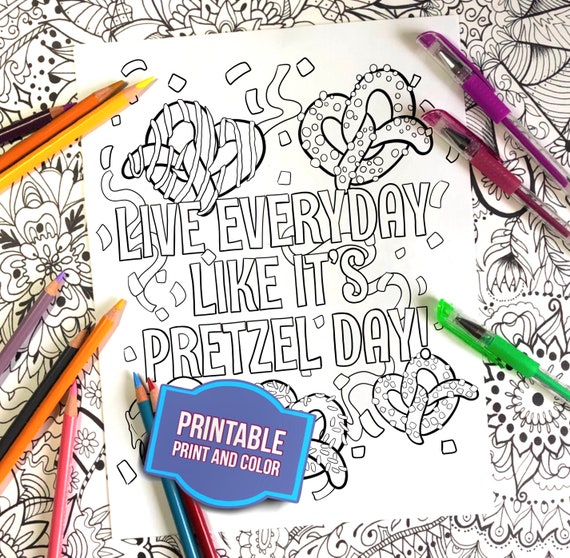 LIVE EVERYDAY
LIKE IT'S
PRETZEL DAY!
PRINTABLE
PRINT AND COLOR